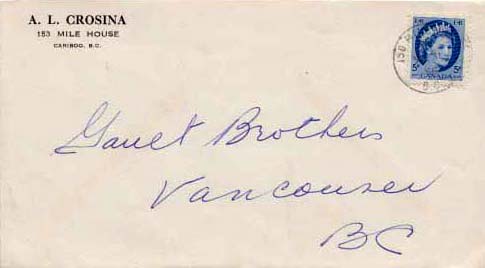 A. L. CROSINA
153 MILE HOUSE
CARIBOO, B.C.
5¢ 5¢
CANADA
150
B.C.
Brothers
Vancouver
BC